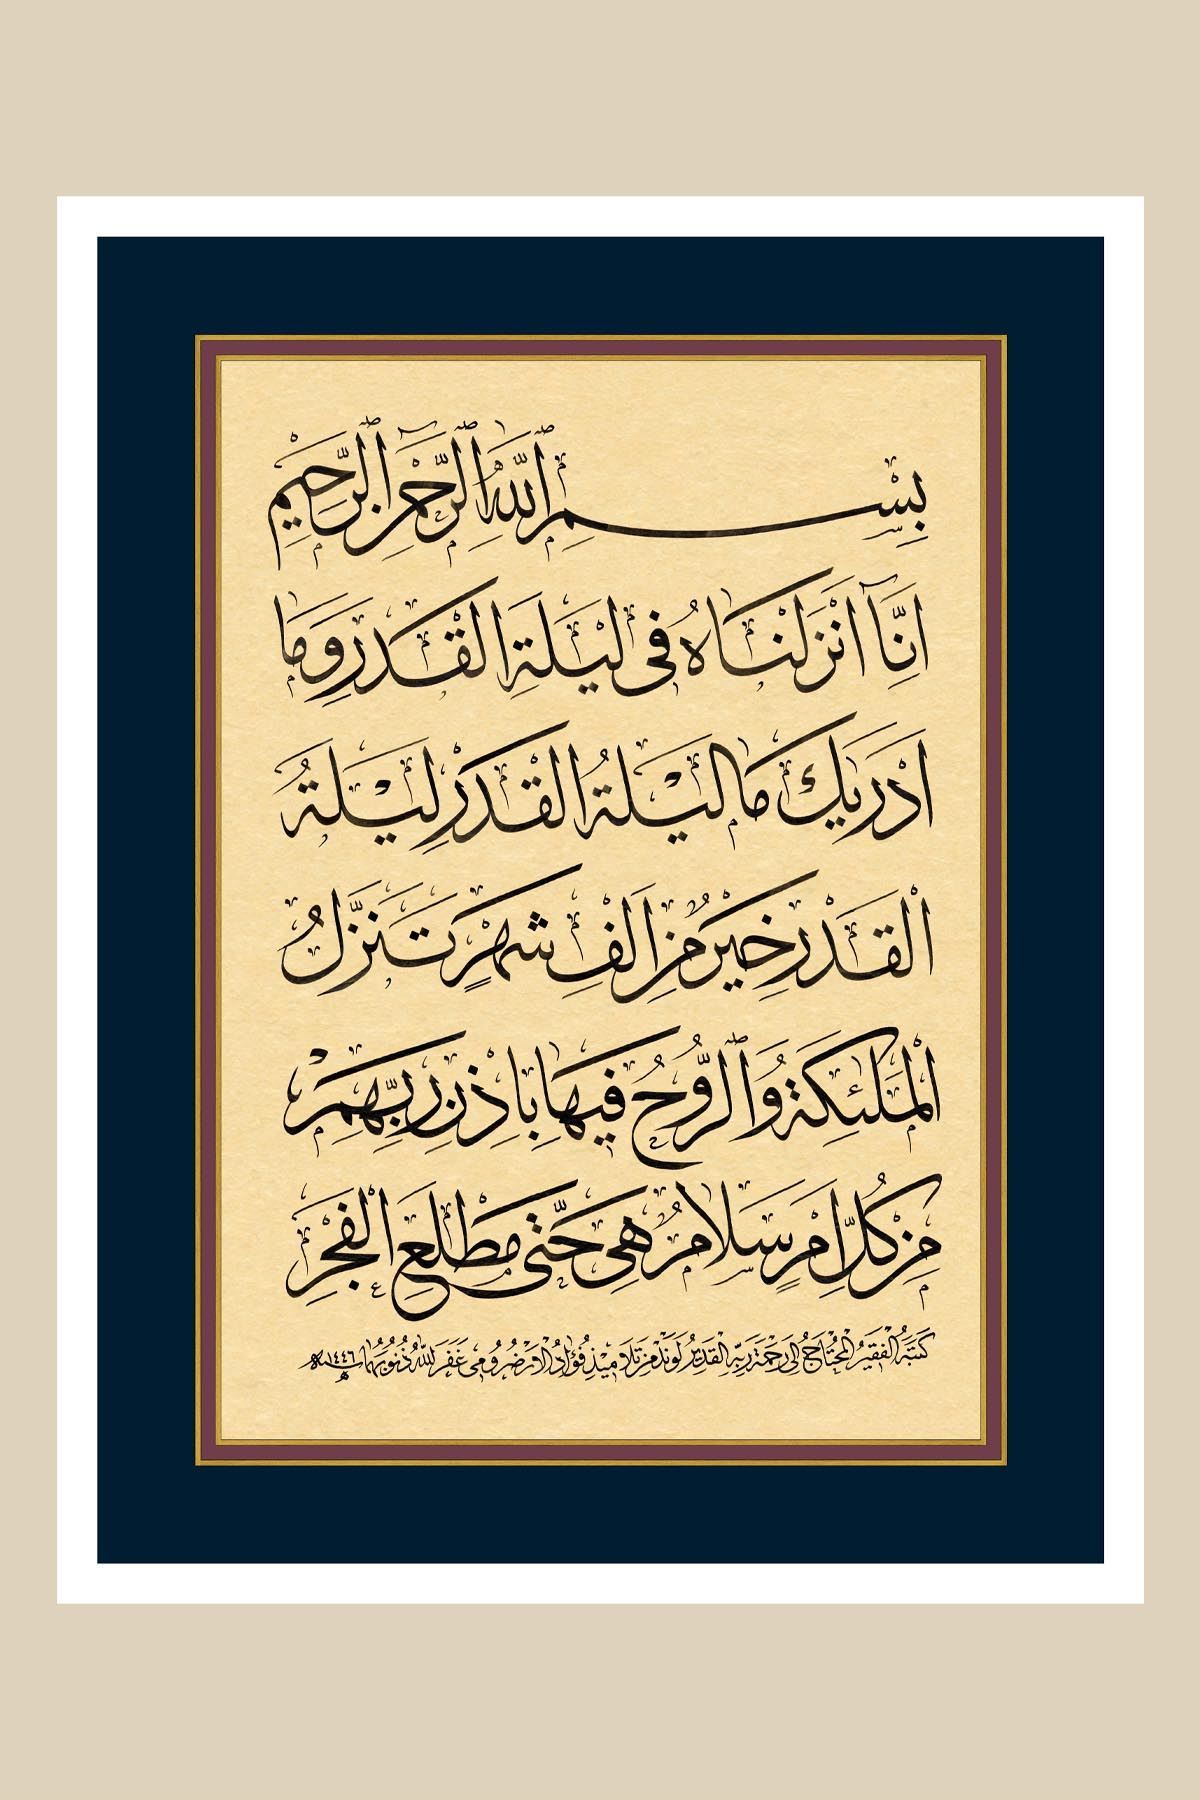 بِسْمِ ٱللّٰهِ ٱلرَّحْمٰنِ ٱلرَّحِيمِ
اِنَّٓا اَنْزَلْنَاهُ فِى لَيْلَةِ الْقَدْرِ وَمَٓا
اَدْرٰيكَ مَا لَيْلَةُ الْقَدْرِ لَيْلَةُ
الْقَدْرِ خَيْرٌ مِنْ اَلْفِ شَهْرٍ تَنَزَّلُ
الْمَلٰئِكَةُ وَٱلرُّوحُ فِيهَا بِاِذْنِ رَبِّهِمْ
مِنْ كُلِّ اَمْرٍ سَلَامٌ هِىَ حَتّٰى مَطْلَعِ الْفَجْرِ
كَتَبَهُ الْفَقِيرُ الْمُحْتَاجُ اِلٰى رَحْمَةِ رَبِّهِ الْقَدِيرِ لَوَنْد مِنْ تَلَامِيذِ فُؤَادُ الْاَرْضُرُومِى غَفَرَ اللّٰهُ ذُنُوبَهُمَا ١٤٤٦هـ